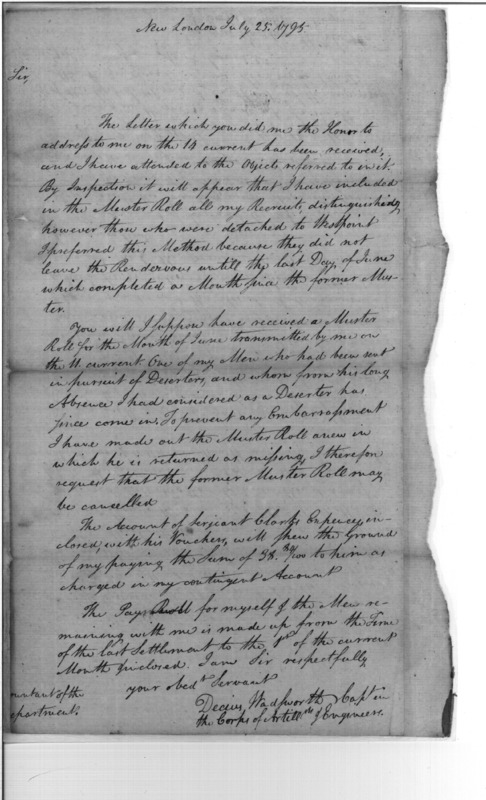 New London July 25. 1795
Sir,
The Letter which you did me the Honor to
address to me on the 14 current has been received,
and I have attended to the Objects referred to in it.
By Inspection it will appear that I have included
in the Muster Roll all my Recruits, distinguishing
however those who were detached to Westpoint
I preferred this Method because they did not
leave the Rendezvous untill the last Day of June
which completed a Month since the former Mus-
ter.
You will I suppose have received a Muster
Roll for the Month of June transmitted by me on
the 11 current One of my Men who had been sent
in pursuit of Deserters, and whom from his long
Absence I had considered as a Deserter has
since come in. To prevent any Embarrassment
I have made out the Muster Roll anew in
which he is returned as missing, I therefore
request that the former Muster Roll may
be cancelled
The Account of Serjeant Clarks Expences, in-
closed, with his Vouchers, will shew the Ground
of my paying the Sum of 38. /100 to him as
charged in my contingent Account
The Pay Roll for myself & the Men re-
maining with me is made up from the Time
of the last Settlement to the 1st of the current
Month Inclosed. I am Sir respectfully
your obedt Servant
Decius Wadsworth Capt in
the Corps of Artillts & Engineers.
ountant of the
epartment.